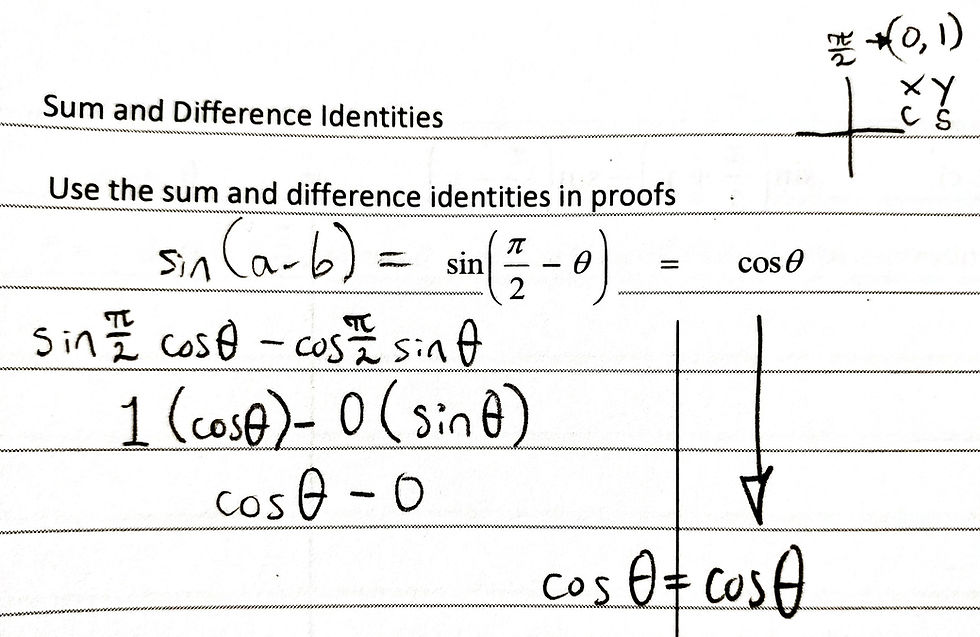 π/2 → (0, 1)
X Y
C S
Sum and Difference Identities
Use the sum and difference identities in proofs
sin(a-b) = sin(π/2 − θ) = cosθ
sin π/2 cosθ − cos π/2 sinθ
1(cosθ) − 0(sinθ)
cosθ − 0
cosθ = cosθ